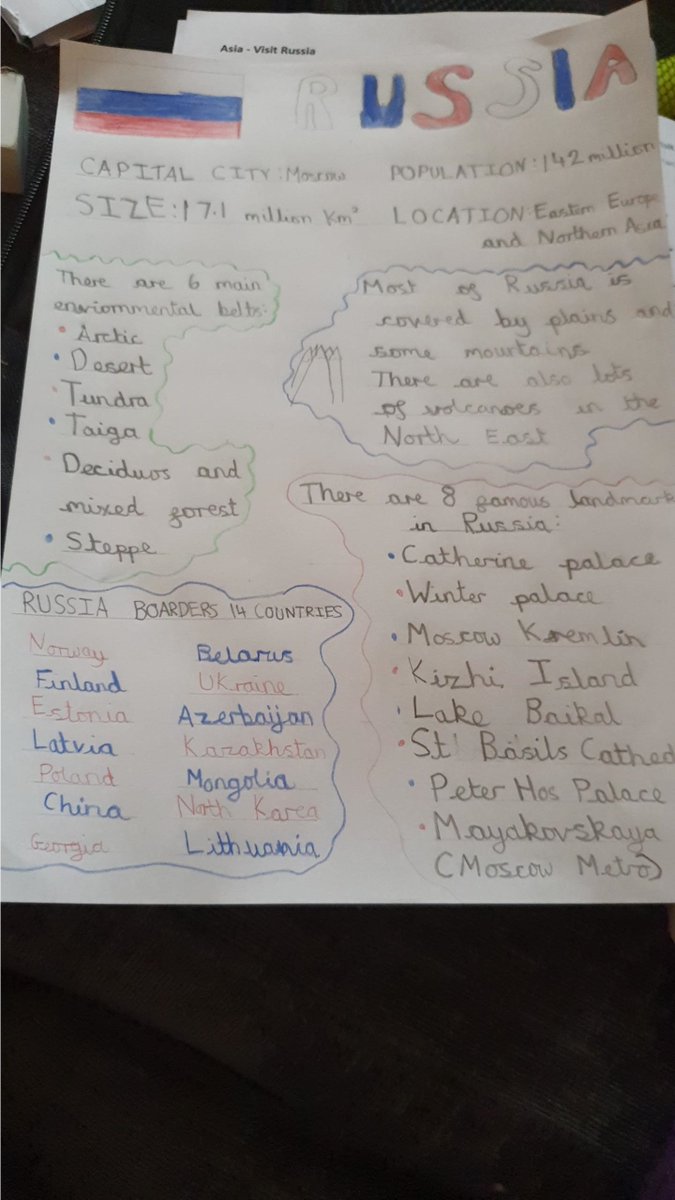 Asia - Visit Russia
RUSSIA
CAPITAL CITY: Moscow
POPULATION: 142 million
SIZE: 17.1 million Km²
LOCATION: Eastern Europe
and Northern Asia
There are 6 main
enviornmental belts:
• Arctic
• Desert
• Tundra
• Taiga
• Deciduos and
mixed forest
• Steppe
Most of Russia is
covered by plains and
some mountains
There are also lots
of volcanoes in the
North East
There are 8 famous landmark
in Russia:
• Catherine palace
• Winter palace
• Moscow Kremlin
• Kizhi Island
• Lake Baikal
• St Basils Cathed
• Peter Hos Palace
• Mayakovskaya
(Moscow Metro)
RUSSIA BOARDERS 14 COUNTRIES
Norway Belarus
Finland UKraine
Estonia Azerbaijan
Latvia Kazakhstan
Poland Mongolia
China North Karea
Georgia Lithuania